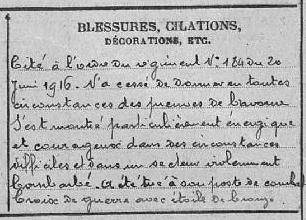 BLESSURES, CITATIONS,
DÉCORATIONS, ETC.
Cité à l'ordre du régiment N° 184 du 20
Juin 1916. N'a cessé de donner en toutes
circonstances des preuves de bravoure
S'est montré particulièrement énergique
et courageux dans des circonstances
difficiles et dans un secteur violemment
bombardé. A été tué à son poste de combat
Croix de guerre avec étoile de bronze